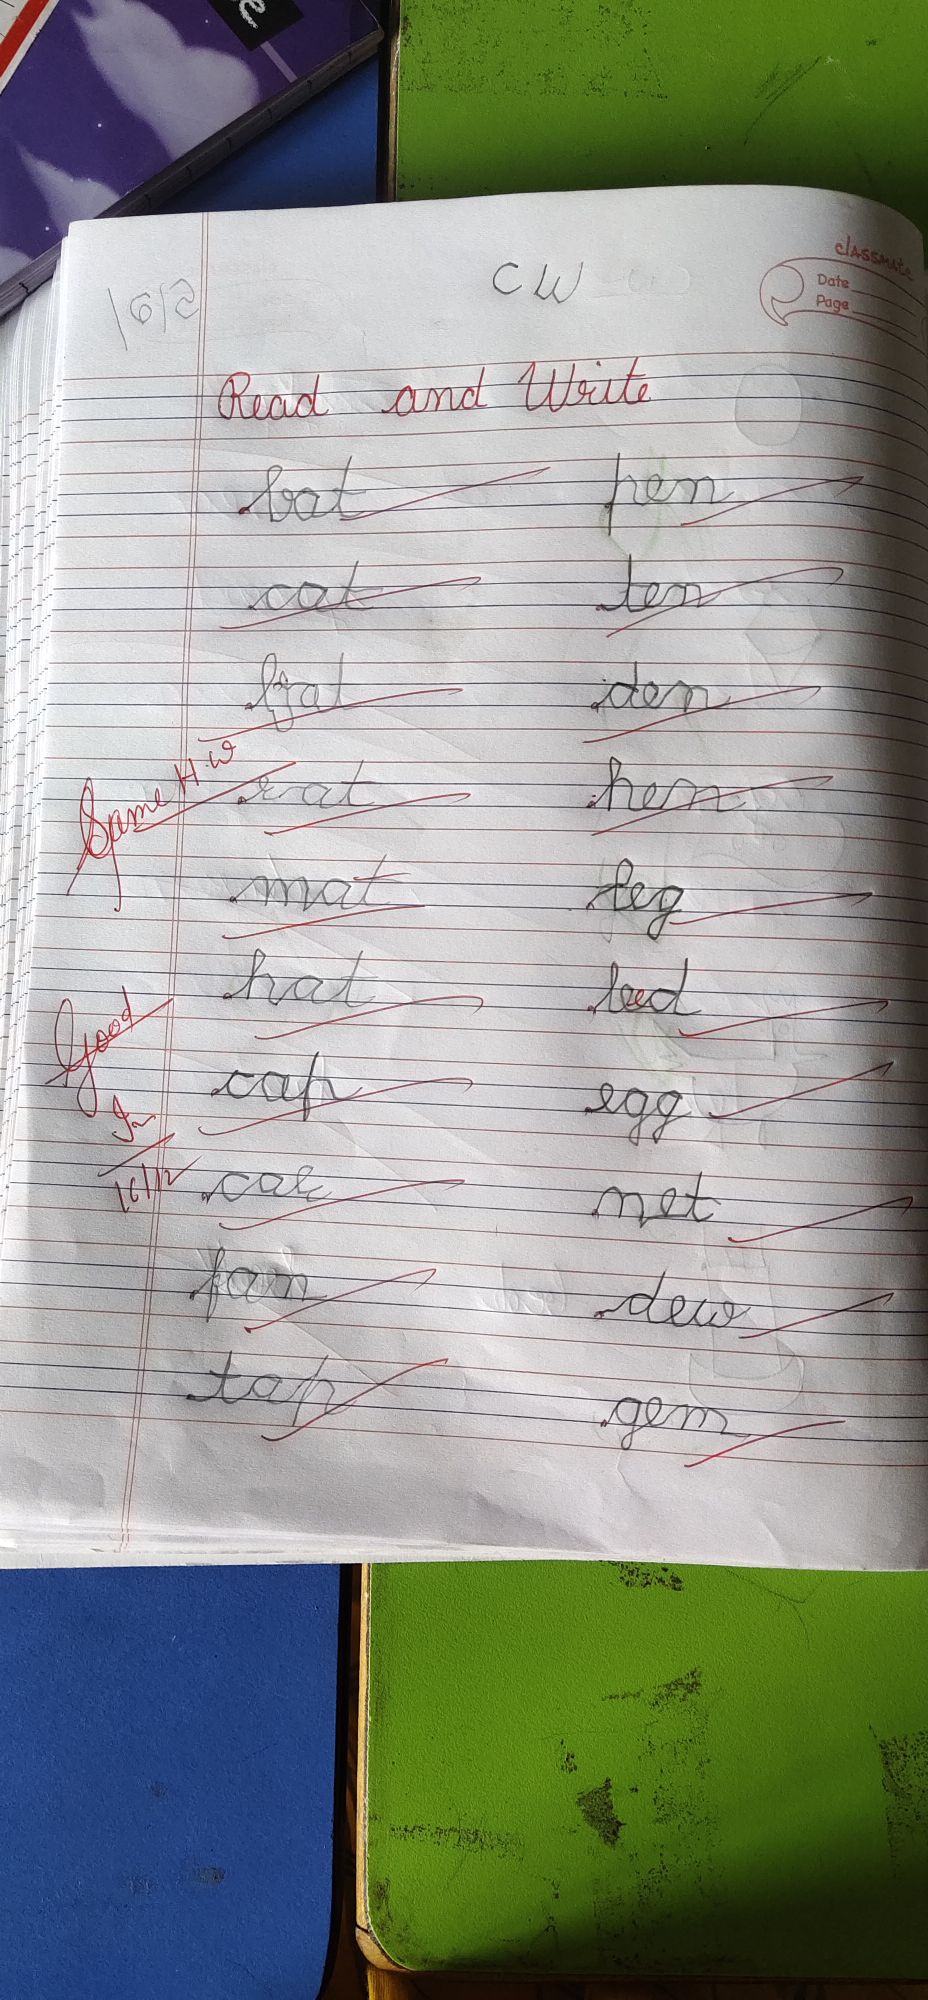 CW
classmate
Date
Page
Read and Write
bat pen
cat ten
fat den
Same H.W
rat hen
mat leg
hat led
Good
cap egg
16/12
net
fan dew
tap gem